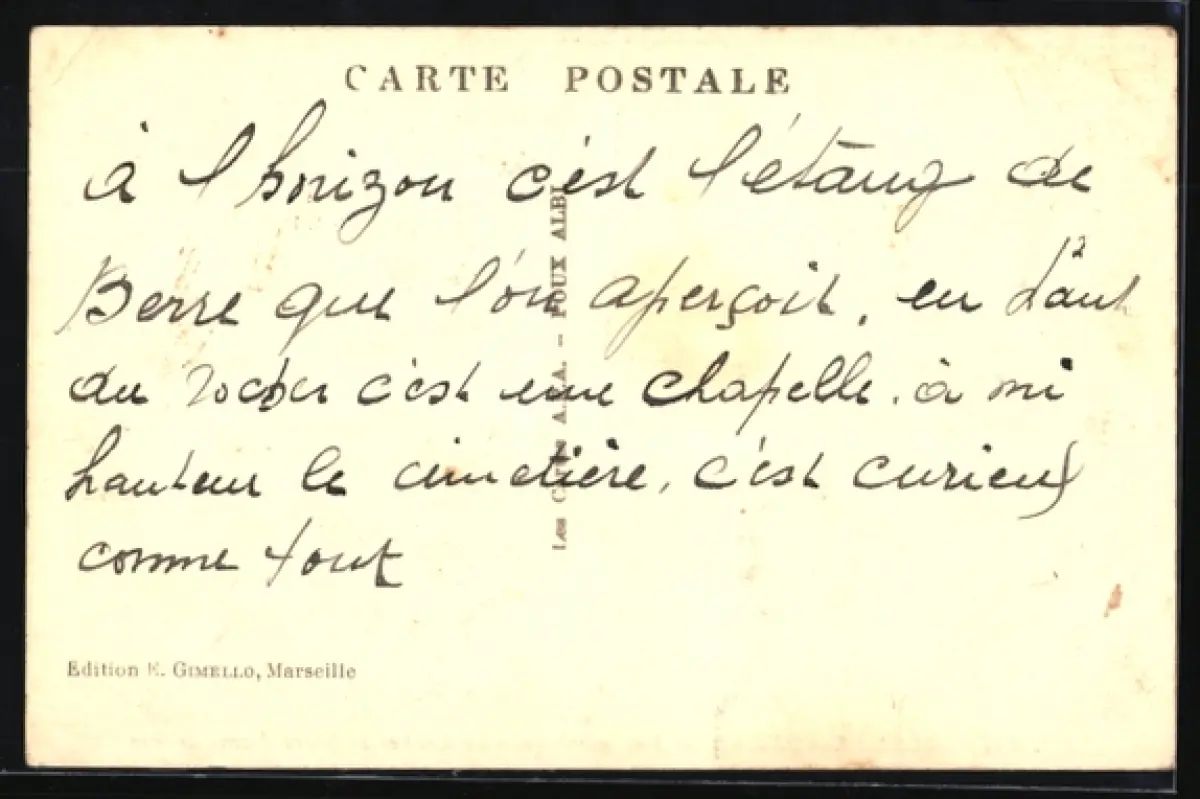 CARTE POSTALE
à l'horizon c'est l'étang de
Berre que l'on aperçoit, en haut
du rocher c'est une chapelle. à mi
hauteur le cimetière, c'est curieux
comme tout
LES CARTES A.P.A. - POUX ALBI
Edition E. GIMELLO, Marseille